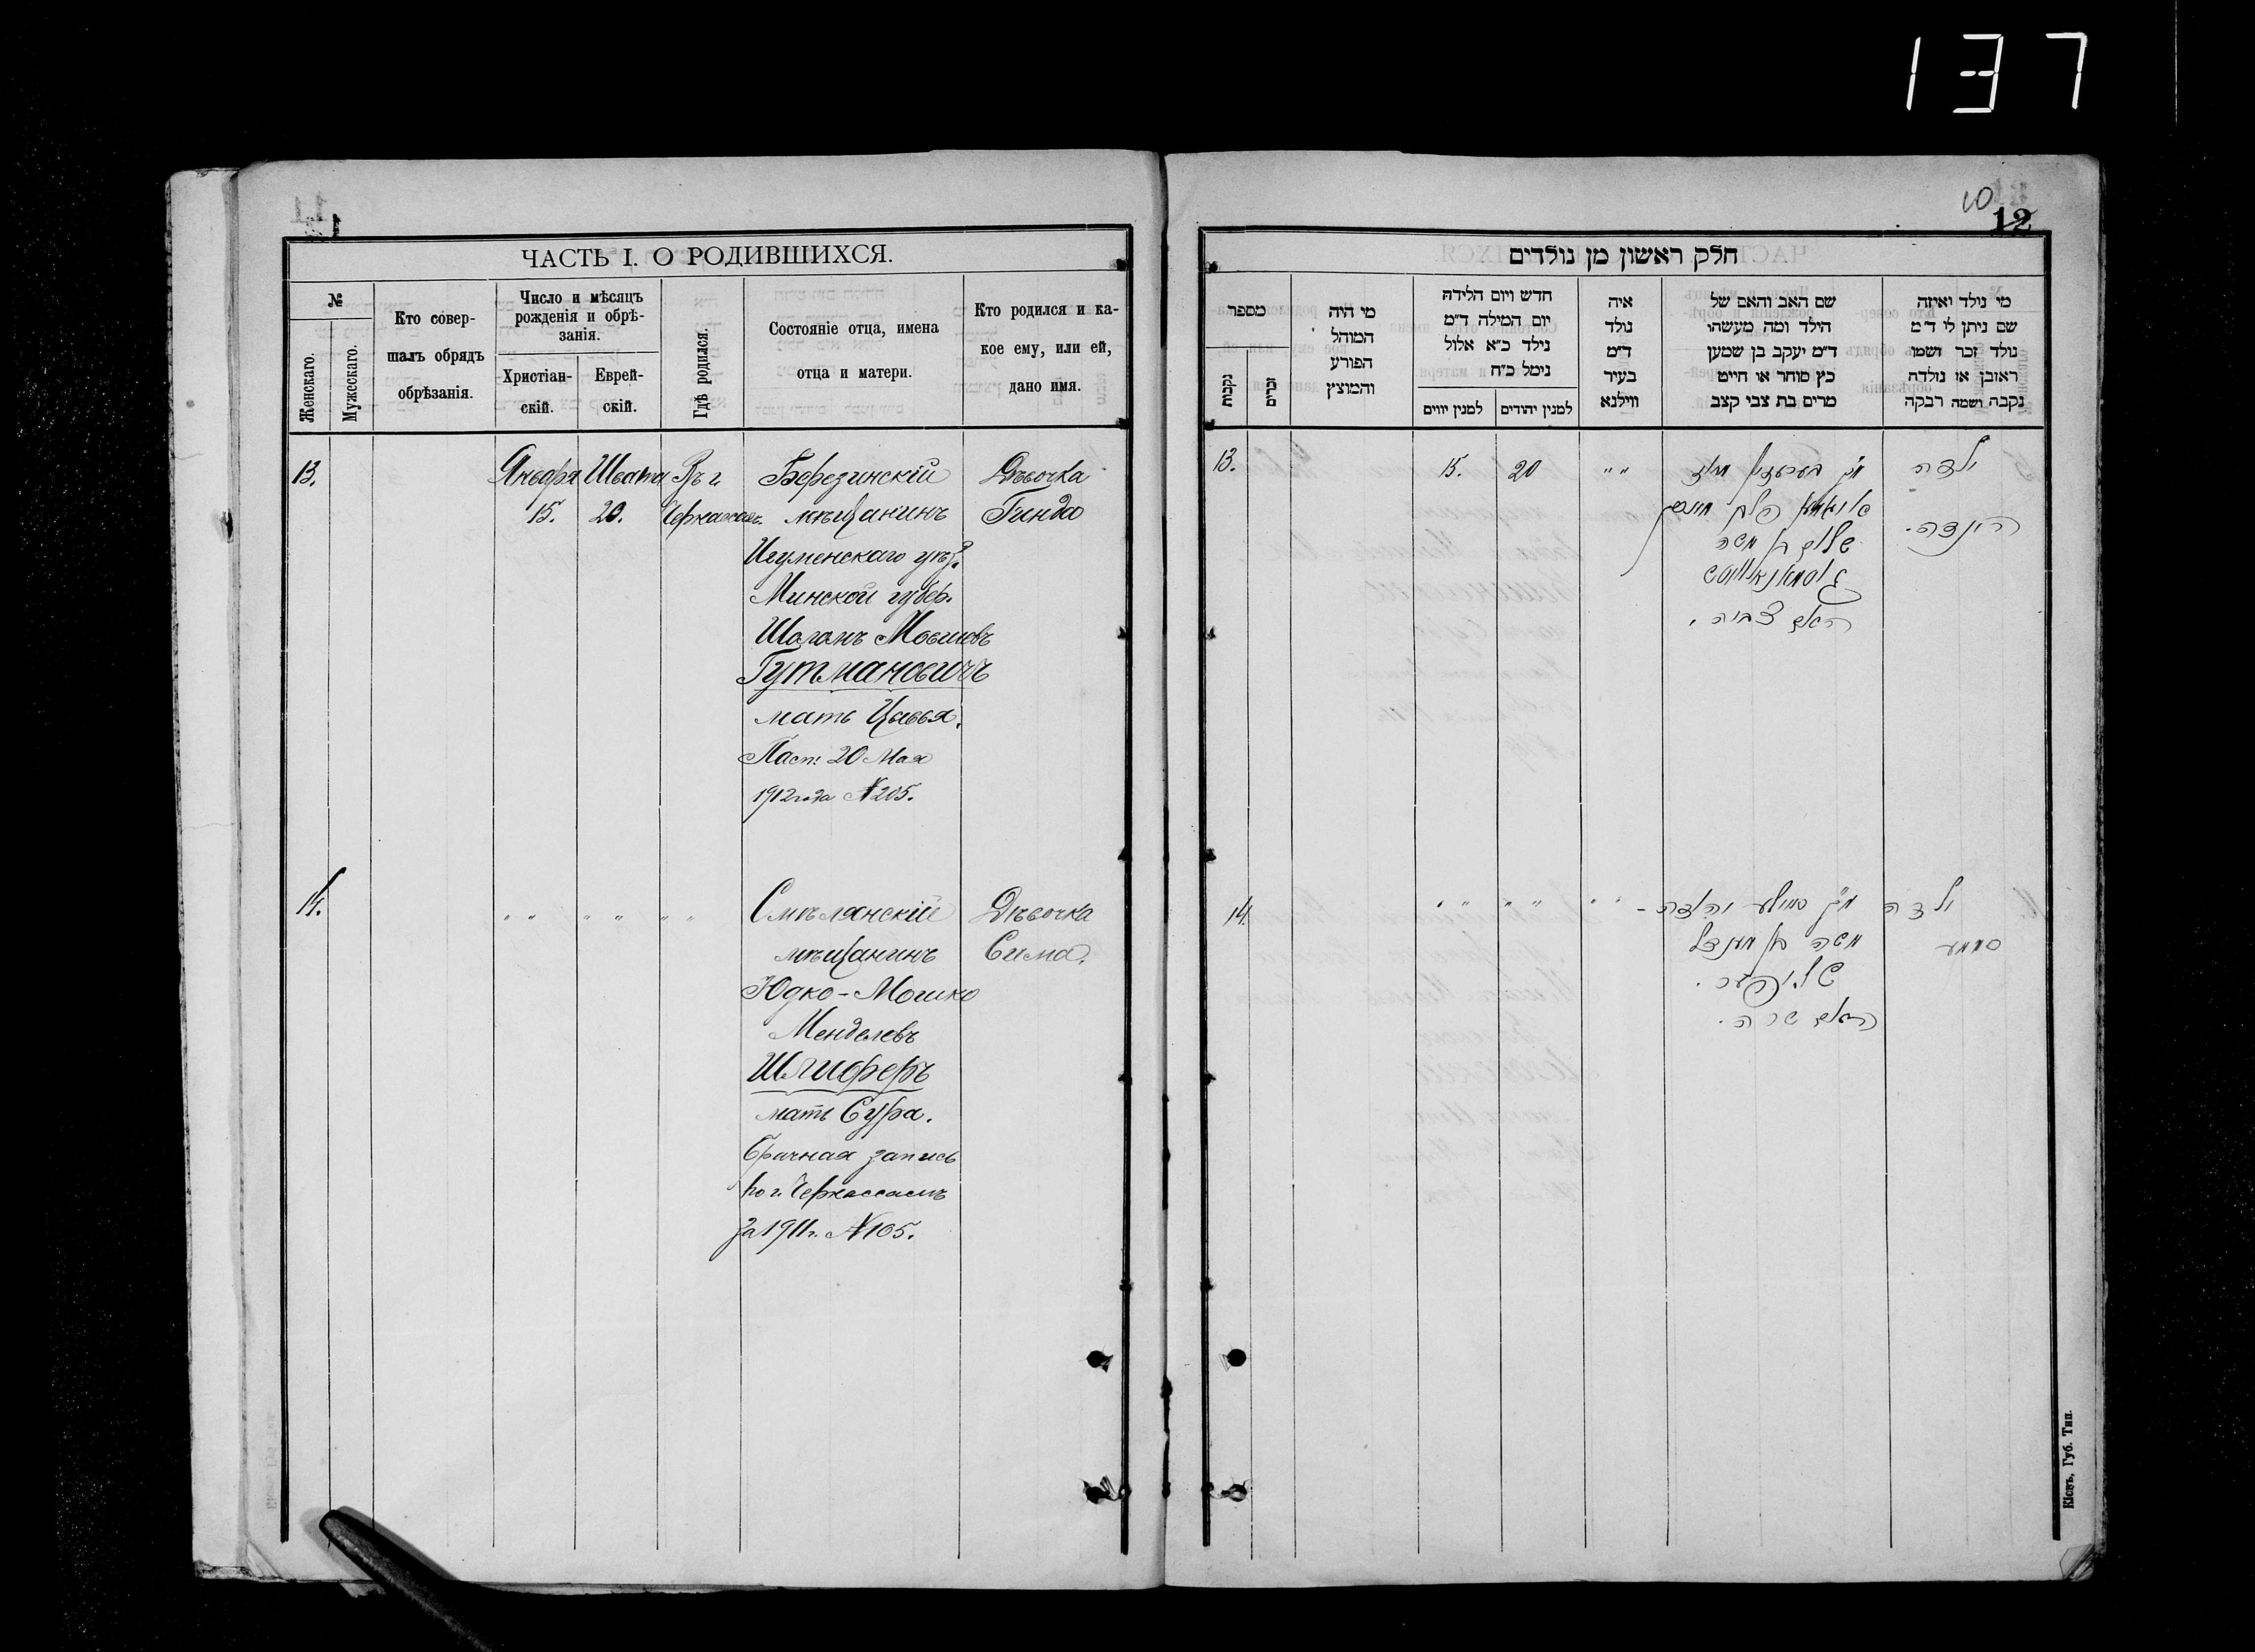 137
ЧАСТЬ I. О РОДИВШИХСЯ.
№
Женскаго.
Мужескаго.
Кто совер-
шалъ обрядъ
обрѣзанія.
Число и мѣсяцъ
рожденія и обрѣ-
занія.
Христіан-
скій.
Еврей-
скій.
Гдѣ родился.
Состояніе отца, имена
отца и матери.
Кто родился и ка-
кое ему, или ей,
дано имя.
13.
Января
15.
Швата
20.
Въ г.
Черкассахъ.
Березинскій
мѣщанинъ
Игуменскаго уѣз.
Минской губер.
Шоломъ Мовшовъ
Гутмановичъ
мать Цывья.
Пасп. 20 Мая
1912 года № 205.
Дѣвочка
Гинда
14.
" "
" "
" "
Смѣлянскій
мѣщанинъ
Юдко-Мошко
Менделевъ
Шлиферъ
мать Сура.
Брачная запись
по г. Черкассамъ
за 1911 г. № 105.
Дѣвочка
Сима.
10
12
חלק ראשון מן נולדים
מספר
נקבות
זכרים
מי היה
המוהל
הפורע
והמוצץ
חדש ויום הלידה
יום המילה ד״מ
נילד כ״א אלול
נימל כ״ח
למנין יווים
למנין יהודים
איה
נולד
ד״מ
בעיר
ווילנא
שם האב והאם של
הילד ומה מעשהו
ד״מ יעקב בן שמען
כץ סוחר או חייט
מרים בת צבי קצב
מי נילד ואיזה
שם ניתן לי ד״מ
נולד זכר ושמו
ראובן או נולדה
נקבה ושמה רבקה
13.
15.
20
" "
שלום בן משה
האם צביה.
ילדה
הינדה.
14.
" "
" "
" "
משה בן מענדל
שליפער.
האם שרה.
ילדה
סימע
Кіевъ, Губ. Тип.